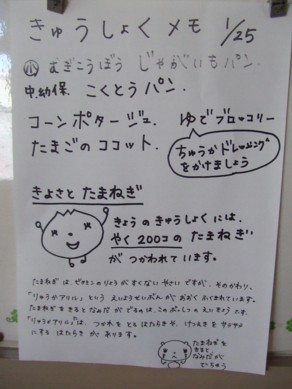 きゅうしょく メモ 1/25
小 むぎこうぼう じゃがいもパン.
中.幼保. こくとうパン.
コーンポタージュ. ゆでブロッコリー
たまごのココット.
ちゅうかドレッシング
をかけましょう
きよさと たまねぎ
きょうの きゅうしょくには、
やく200コの たまねぎ
が つかわれています。
たまねぎは、ビタミンのりょうが すくない やさいですが、そのかわり、
「りゅうかアリル」という えいようせいぶんが おおく ふくまれています。
たまねぎを きると なみだが でるのは、この
「りゅうかアリル」は、つかれを とる はたらきや、けつえきを サラサラ
にする はたらきが あります。
たまねぎを
きると
なみだが
でちゃう